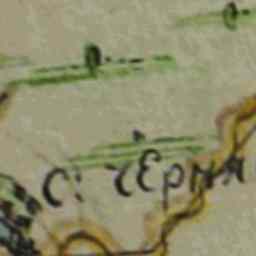 С: чЕрня